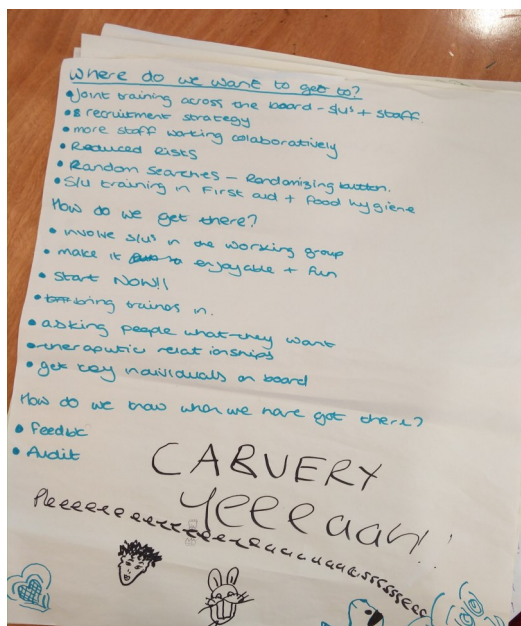 Where do we want to get to?
•Joint training across the board - S/U's + staff.
• & recruitment strategy
• more staff working colaboratively
• Reduced Risks
• Random searches - Randomising button.
• S/U training in First aid + Food hygiene
How do we get there?
• involve S/U's in the working group
• make it enjoyable + fun
• Start NOW!!
• bring trainos in.
• asking people what they want
• theraputic relationships
• get key individuals on board
How do we know when we have got there?
• Feedbc
• Audit
CARVERY
yeeeaah!!